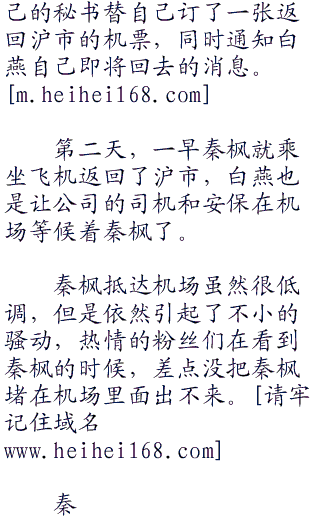 己的秘书替自己订了一张返
回沪市的机票，同时通知白
燕自己即将回去的消息。
[m.heihei168.com]
第二天，一早秦枫就乘
坐飞机返回了沪市，白燕也
是让公司的司机和安保在机
场等候着秦枫了。
秦枫抵达机场虽然很低
调，但是依然引起了不小的
骚动，热情的粉丝们在看到
秦枫的时候，差点没把秦枫
堵在机场里面出不来。[请牢
记住域名
www.heihei168.com]
秦